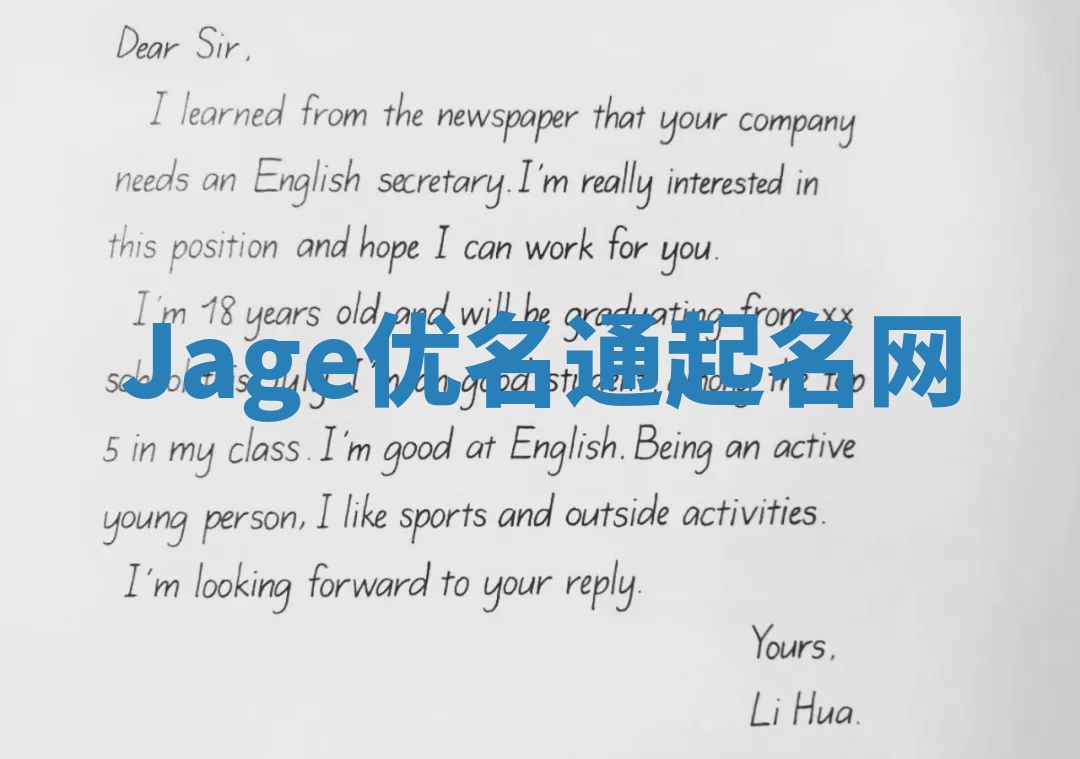 Dear Sir,
I learned from the newspaper that your company
needs an English secretary. I'm really interested in
this position and hope I can work for you.
I'm 18 years old and will be graduating from xx
Jage优名通起名网
school this July. I'm a good student, among the top
5 in my class. I'm good at English. Being an active
young person, I like sports and outside activities.
I'm looking forward to your reply.
Yours,
Li Hua.